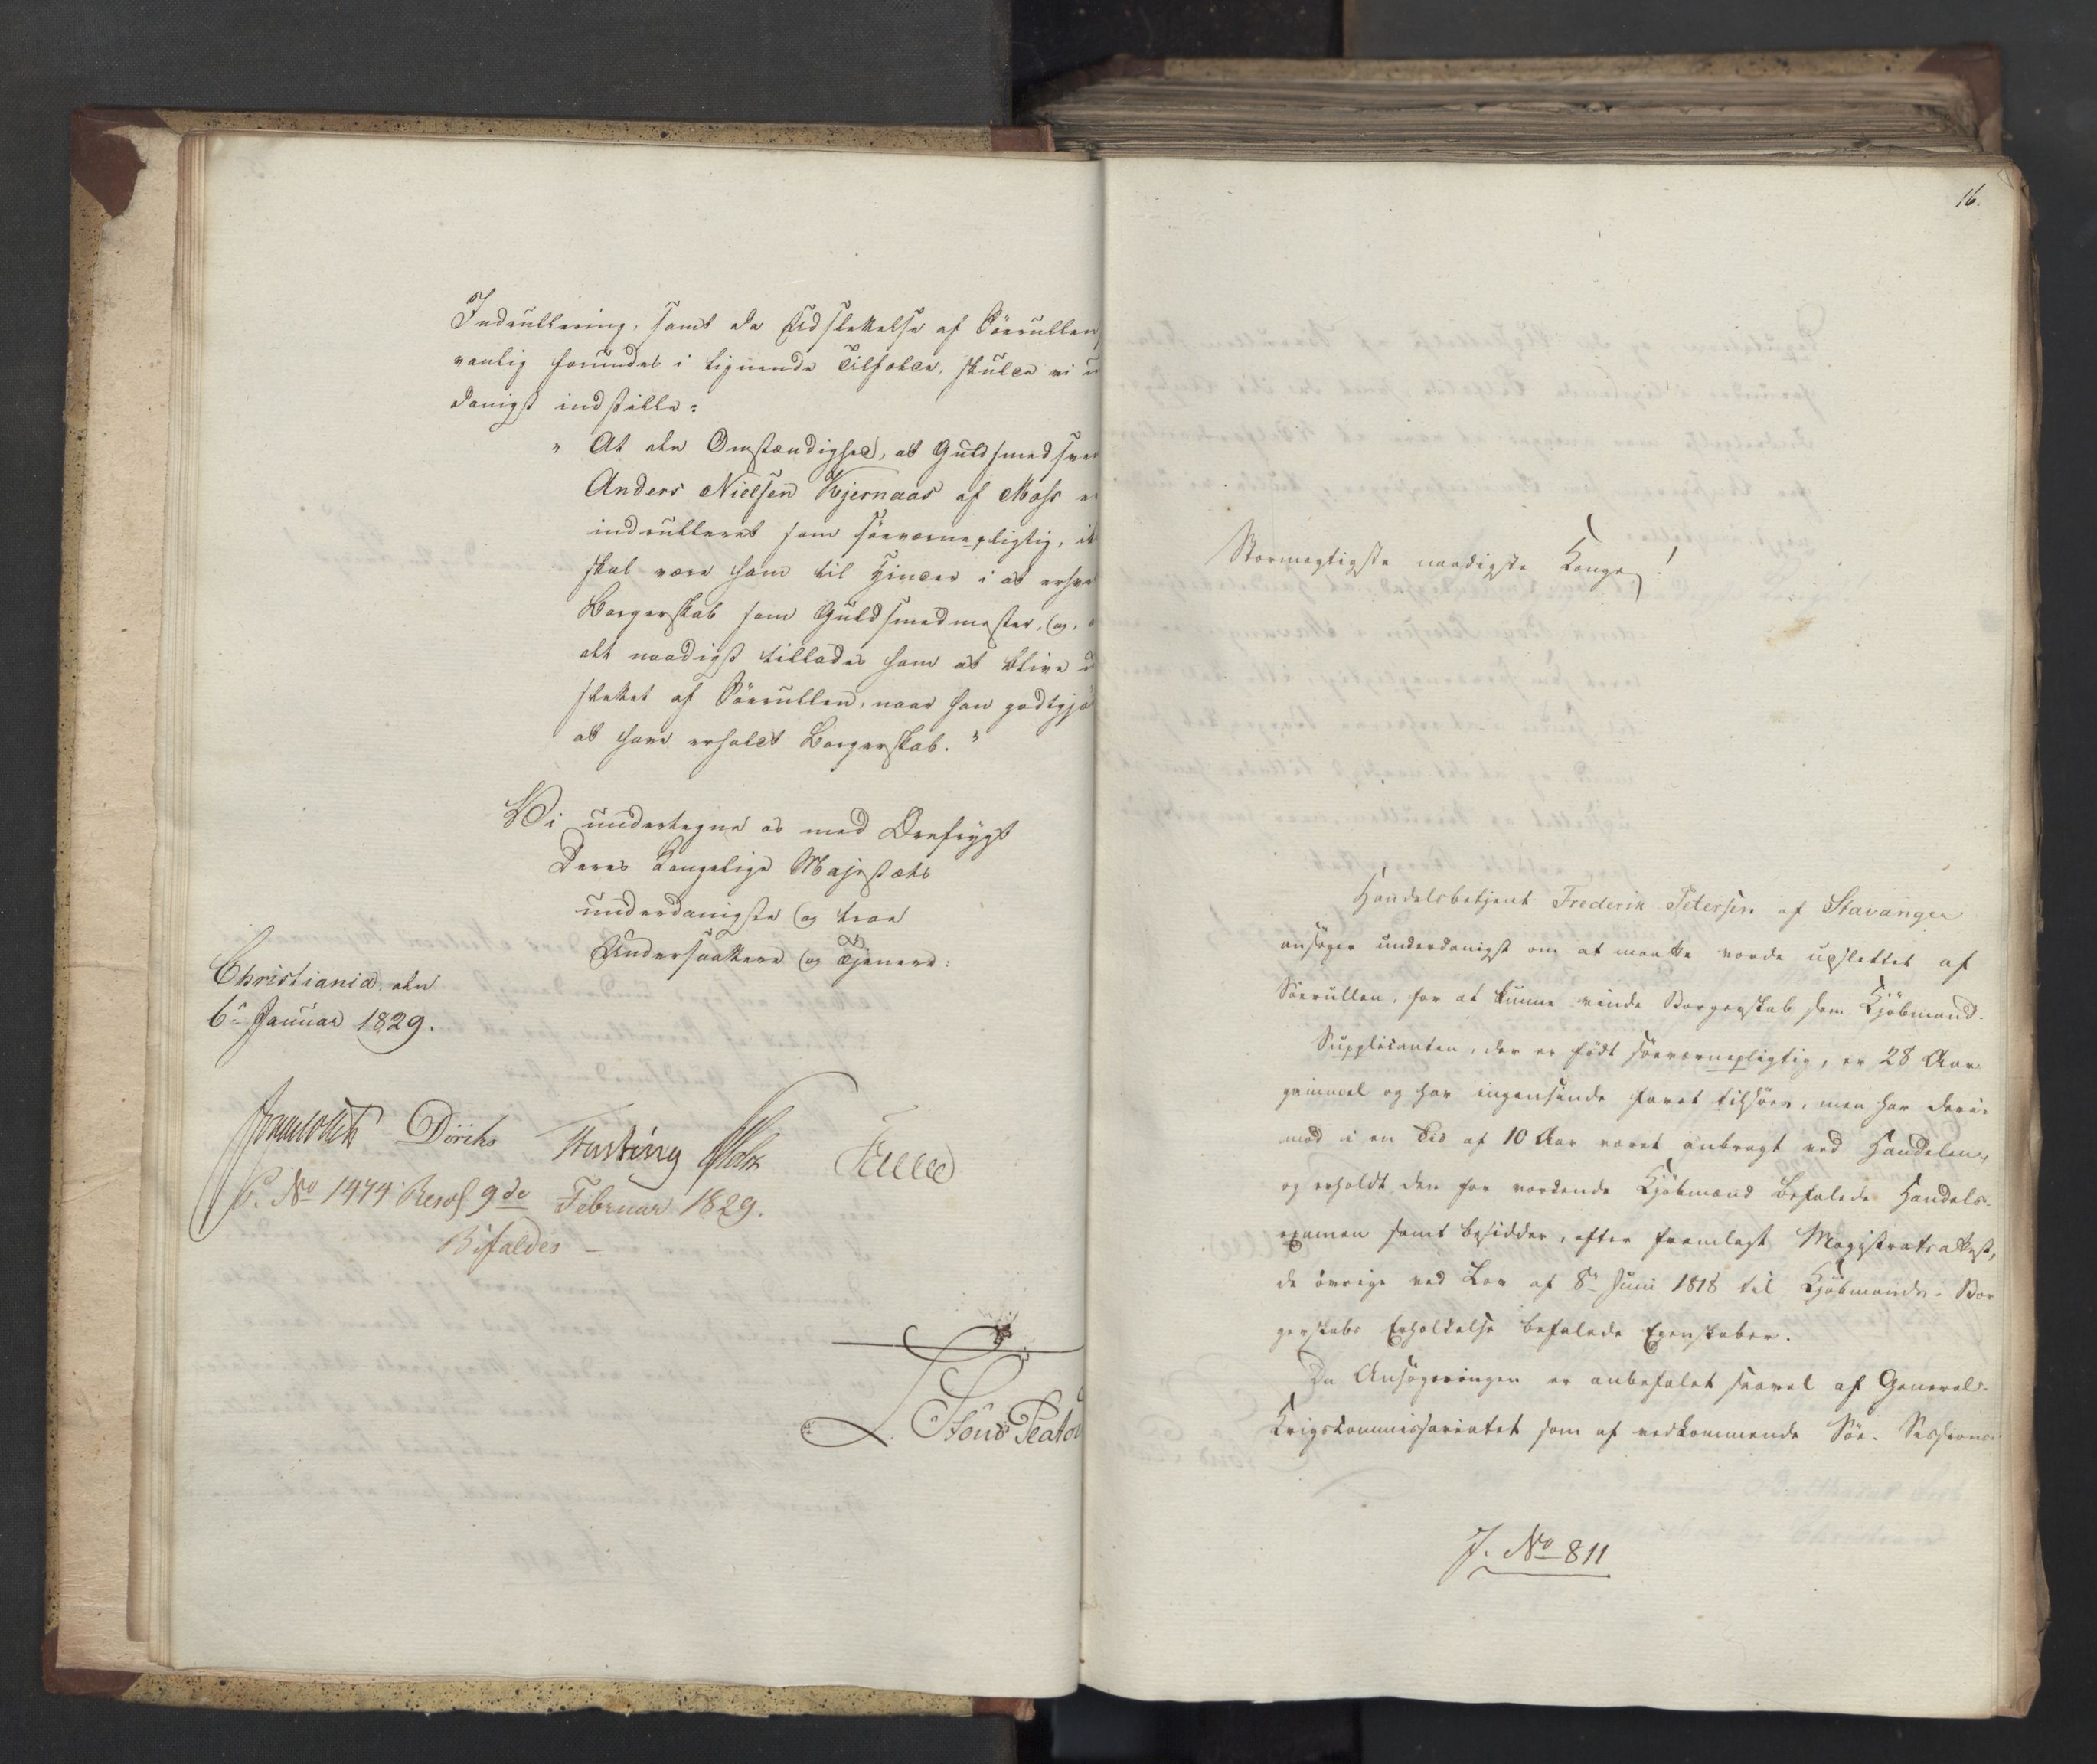 Indrullering, samt da Udslettelse af Söerullen
vanlig forundes i lignende Tilfælde, skulde vi u
danigst indstille:
" At den Omstændighed, at Guldsmedsve
Anders Nielsen Kjernaas af Moss e
indrulleret som söeværnepligtig, ik
skal være ham til Hinder i at erhve
Borgerskab som Guldsmedmester, og,
det naadigst tillades ham at blive u
slettet af Söerullen, naar han godtgjö
at have erholdt Borgerskab. "
Vi undertegne os med Ærefrygt
Deres Kongelige Majestæts
underdanigste og troe
Undersaattere og Tjenere:
Christiania, den
6te Januar 1829.
Diriks Fasting Holst
P. No 1474. Resol. 9de Februar 1829.
Bifaldes –
16.
Stormægtigste naadigste Konge!
Handelsbetjent Frederik Petersen af Stavanger
ansöger underdanigst om at maatte vorde udslettet af
Söerullen, for at kunne vinde Borgerskab som Kjöbmand.
Supplicanten, der er födt söeværnepligtig, er 28 Aar
gammel og har ingensinde faret tilsöes, men har deri-
mod i en Tid af 10 Aar været anbragt ved Handelen,
og erholdt den for vordende Kjöbmænd befalede Handels-
examen samt besidder, efter fremlagt Magistratsattest,
de övrige ved Lov af 8de Juni 1818 til Kjöbmands-Bor
gerskabs Erholdelse befalede Egenskaber.
Da Ansögningen er anbefalet saavel af General-
Krigskommissariatet som af vedkommende Söe-Sessions-
J. No 811